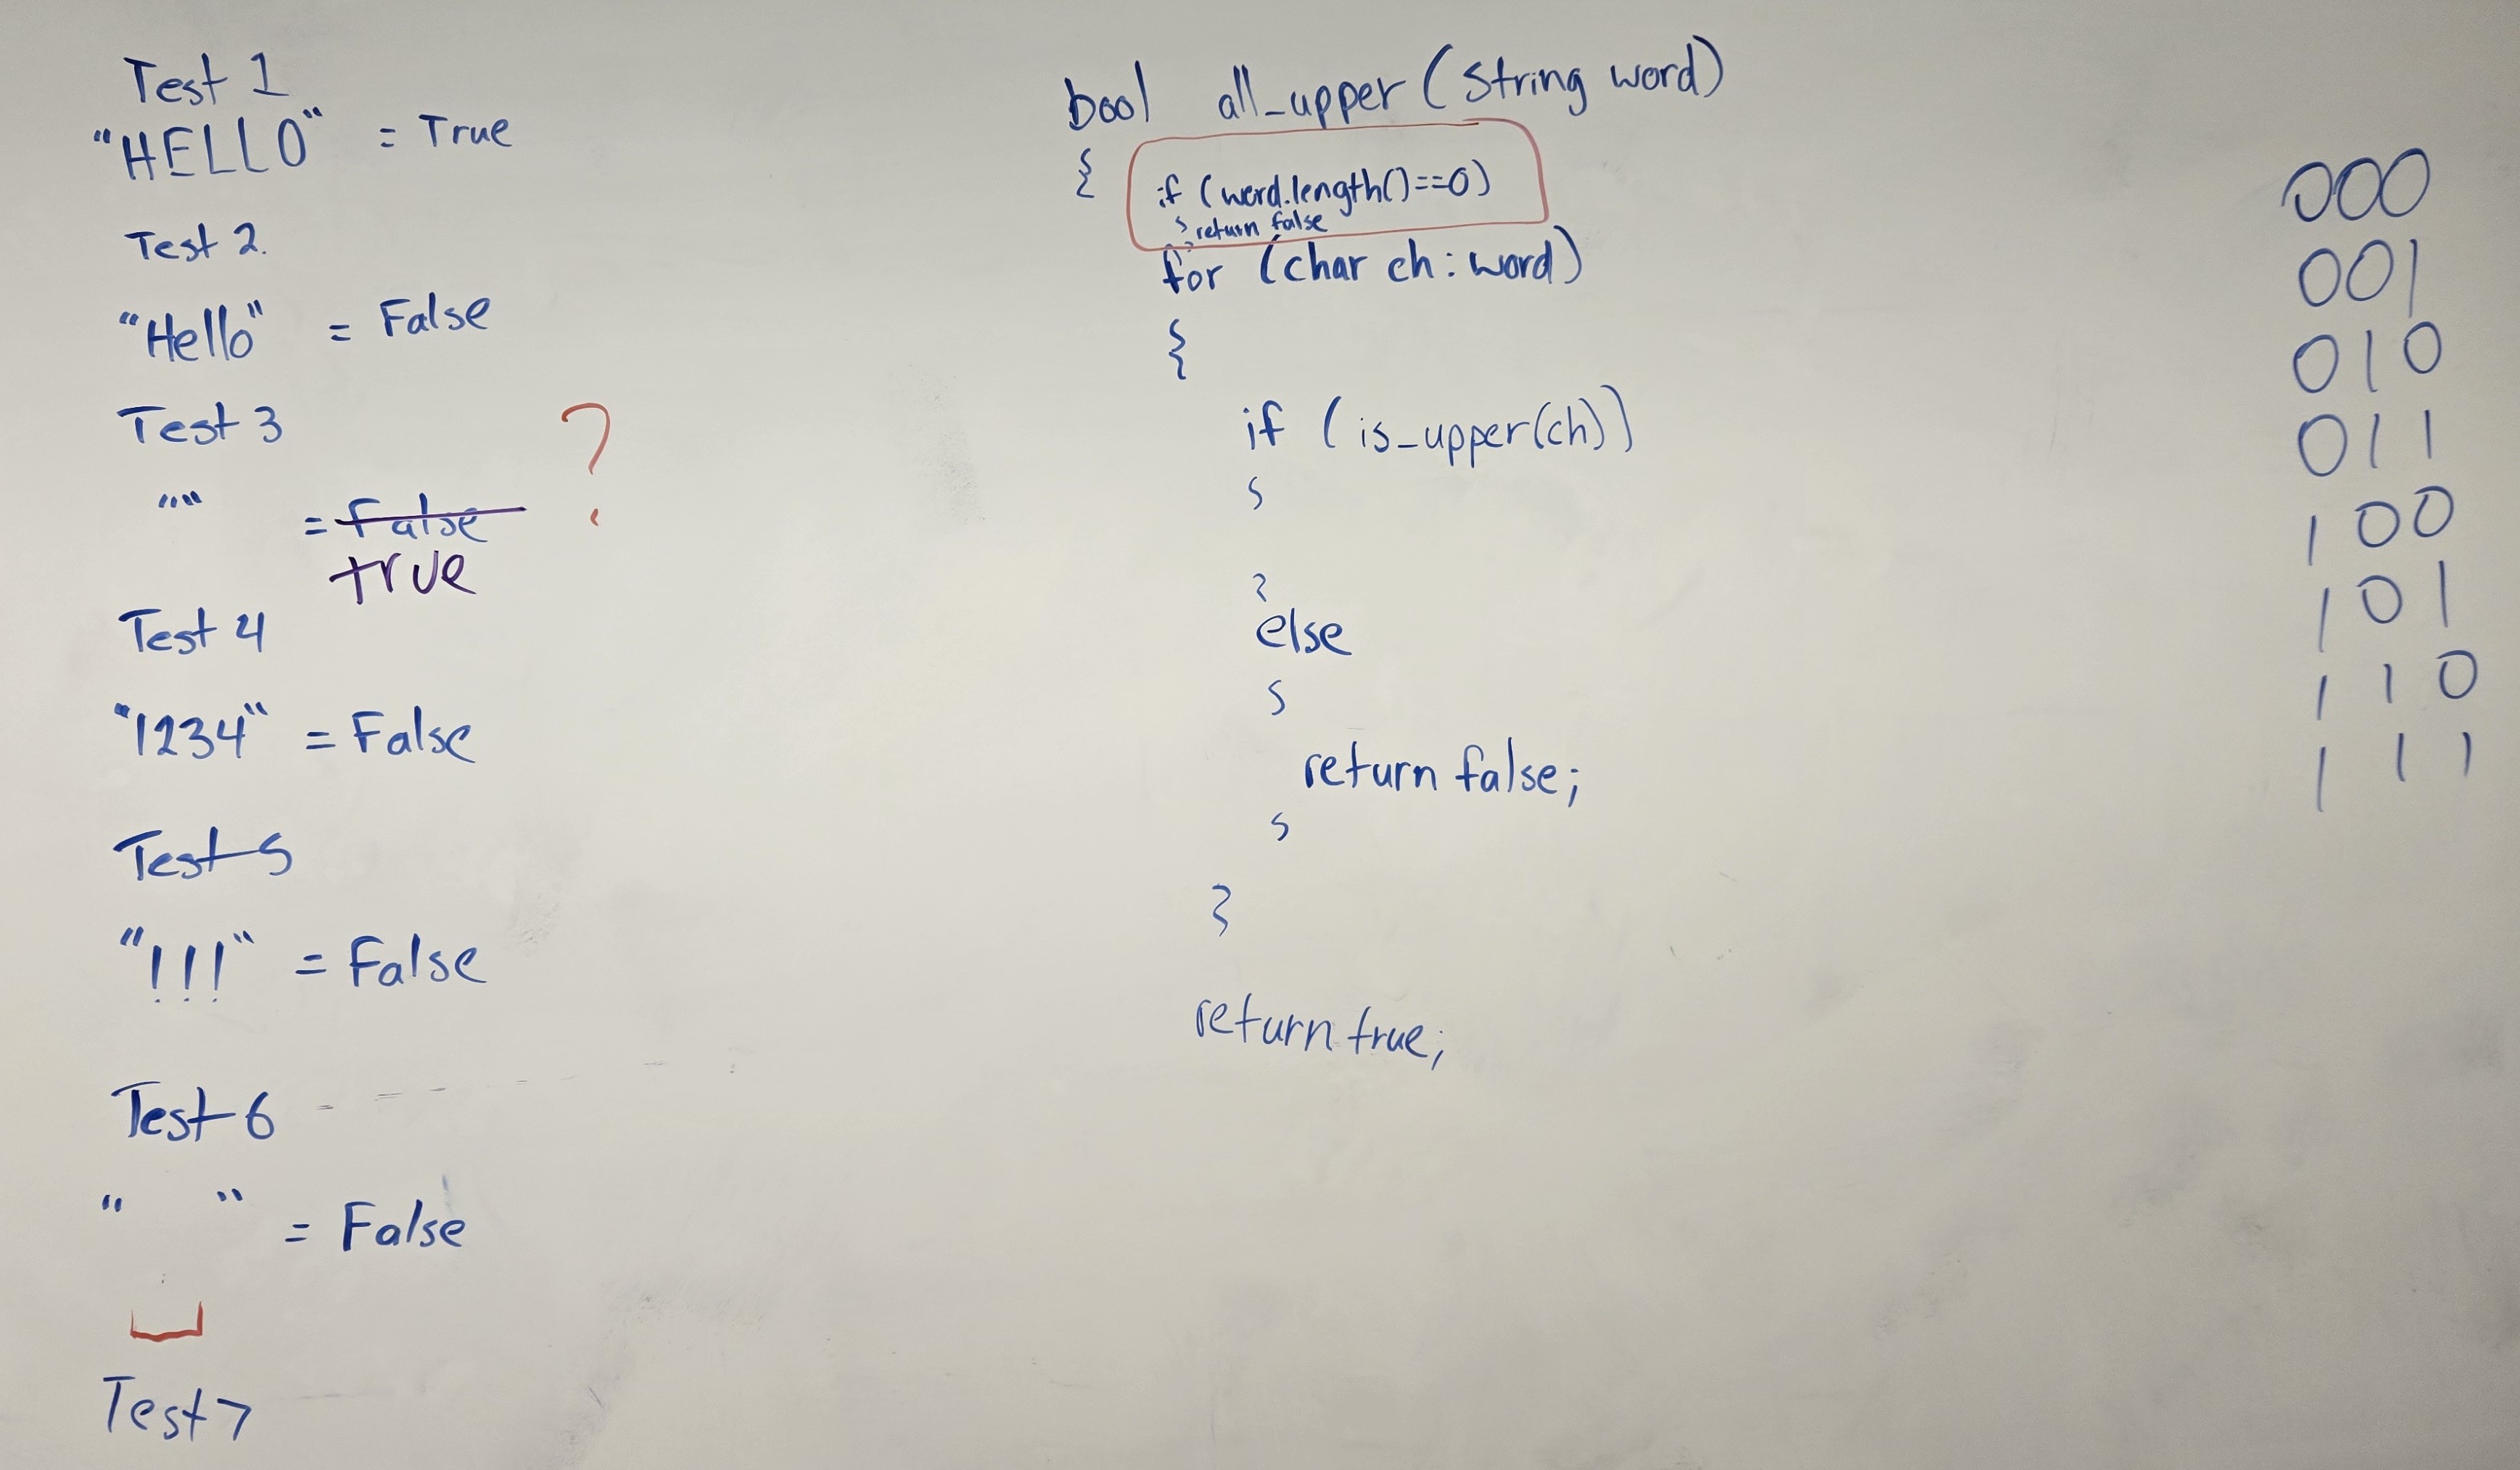 Test 1
"HELLO" = True
Test 2.
"Hello" = False
Test 3
?
"" = False
true
Test 4
"1234" = False
Test 5
"!!!" = False
Test 6
" " = False
Test 7
bool all_upper (String word)
{
if (word.length()==0)
{ return false
}
for (char ch : word)
{
if (is_upper(ch))
{
}
else
{
return false;
}
}
return true;
000
001
010
011
100
101
110
111